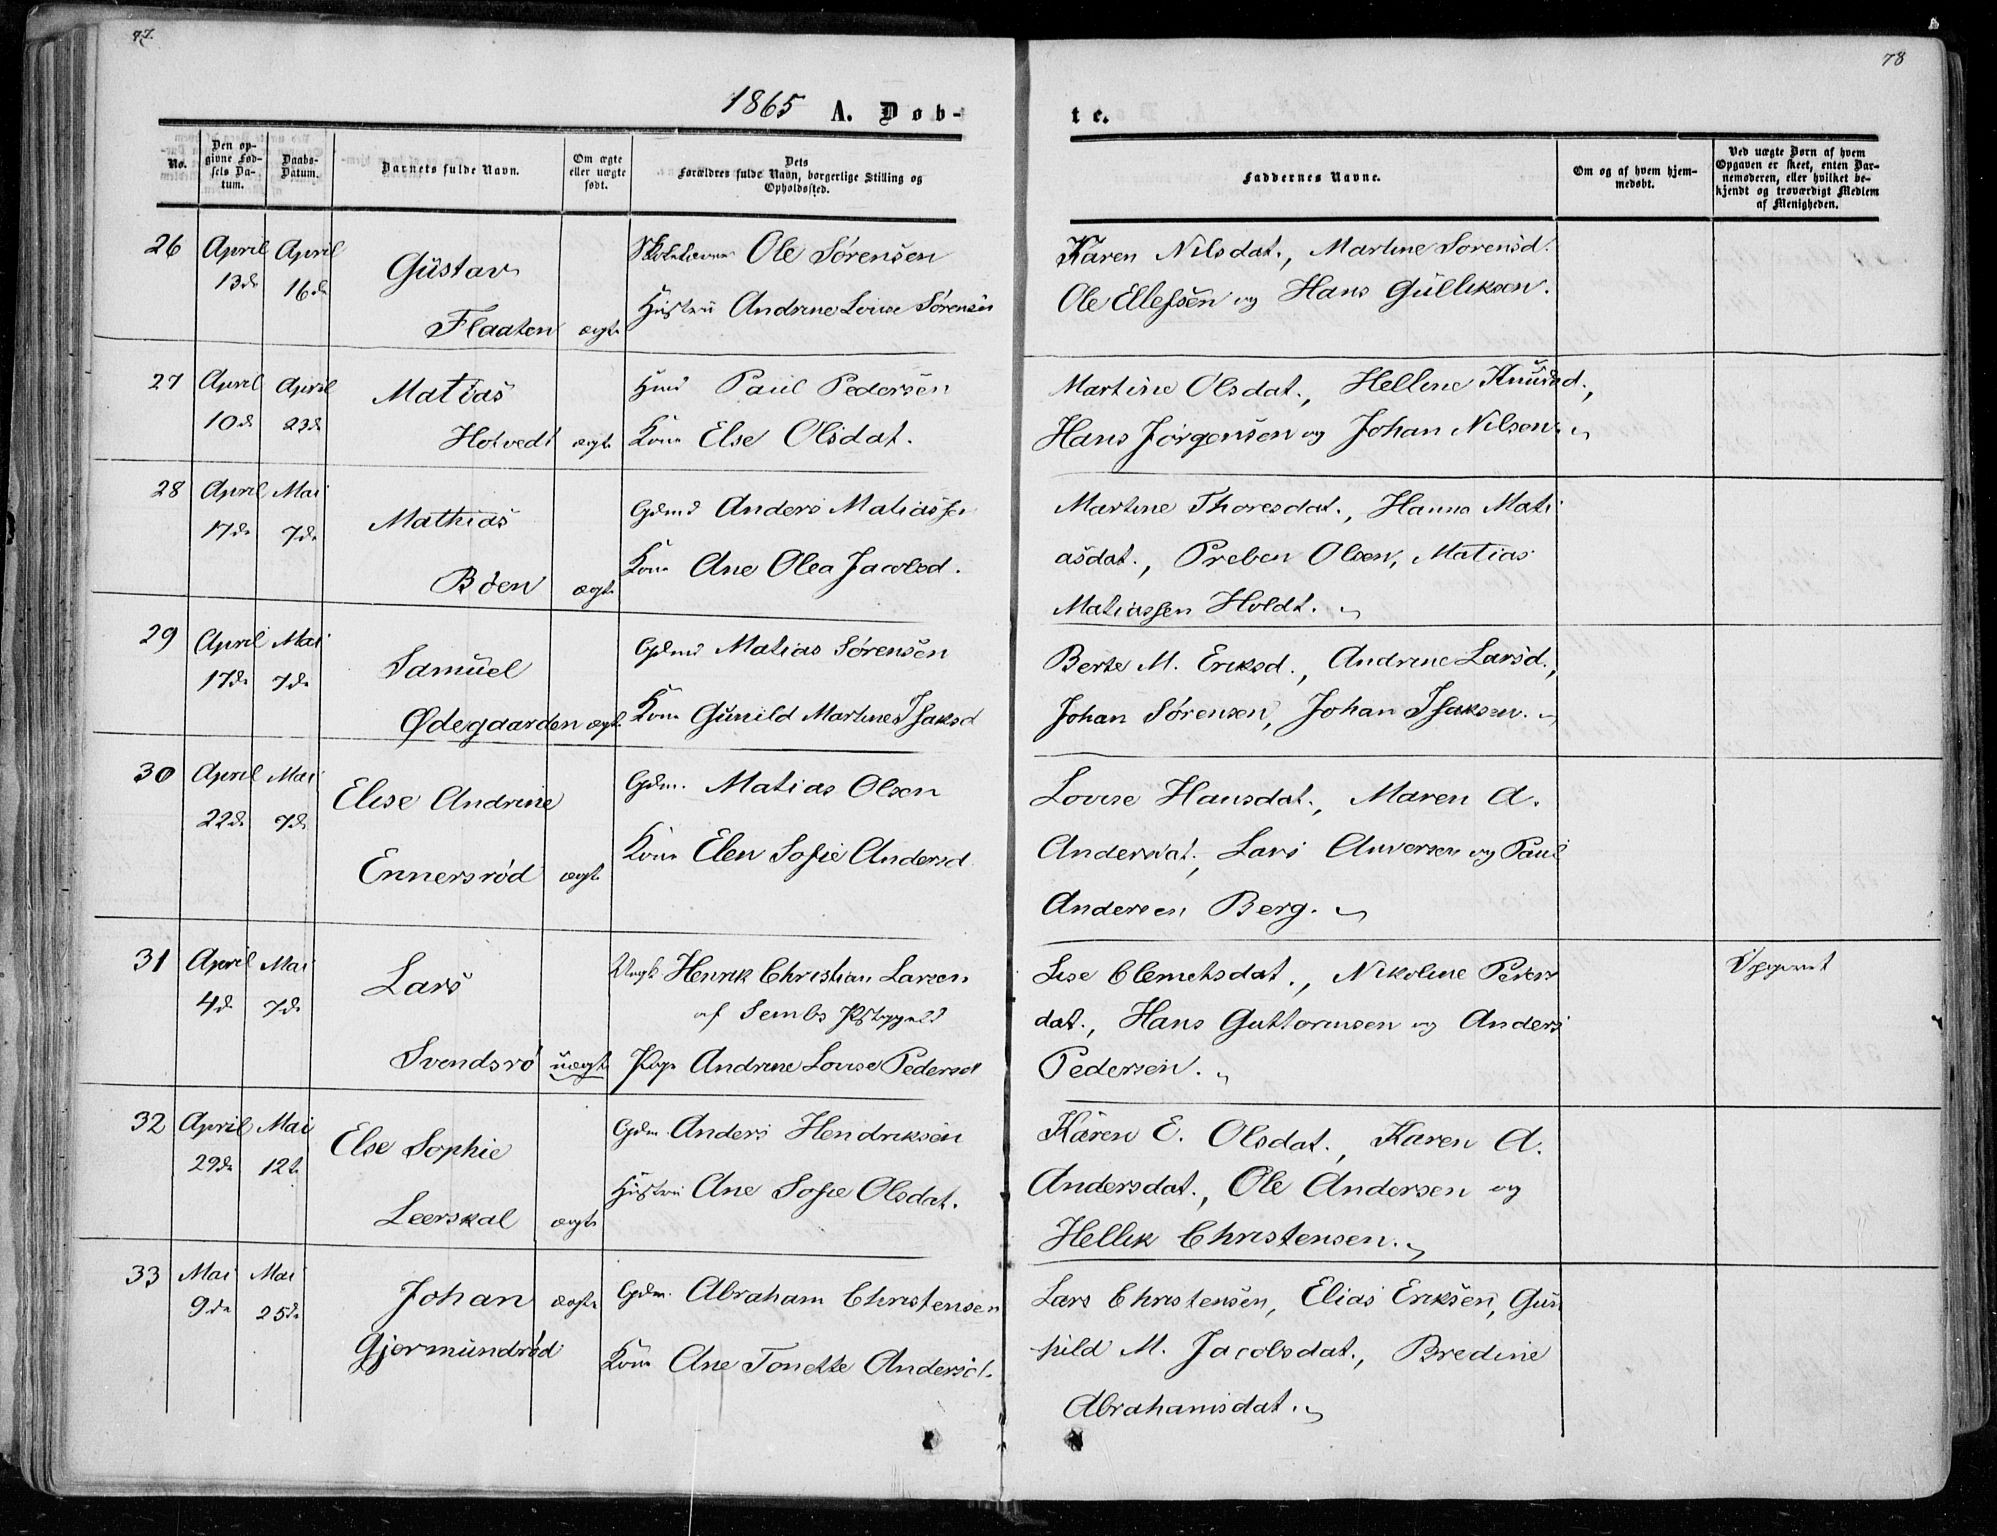 77.
78
1865 A. Døb-
te.
No.
Den op-
givne Fød-
sels Da-
tum.
Daabs-
Datum.
Barnets fulde Navn.
Om ægte
eller uægte
født.
Dets
Forældres fulde Navn, borgerlige Stilling og
Opholdssted.
Faddernes Navne.
Om og af hvem hjem-
medøbt.
Ved uægte Børn af hvem
Opgaven er skeet, enten Bar-
nemoderen, eller hvilket be-
kjendt og troværdigt Medlem
af Menigheden.
26 April April
13de 16de
Gustav
Flaaten ægte
Skolelærer Ole Sørensen
Hustru Andrine Lovise Sørensen
Karen Nilsdat., Martine Sorensd.
Ole Ellefsen og Hans Gulliksen.
27 April April
10de 23de
Matias
Hotvedt ægte
Hmd Paul Pedersen
Kone Else Olsdat.
Martine Olsdat., Hellene Knudsd.,
Hans Jørgensen og Johan Nilsen.
28 April Mai
17de 7de
Mathias
Bøen ægte
Gdmd Anders Matiassen
Kone Ane Olea Jacobsd.
Martine Thoresdat., Hanna Mati
asdat., Preben Olsen, Matias
Matiassen Holdt.
29 April Mai
17de 7de
Samuel
Ødegaarden ægte
Gdmd Matias Sørensen
Kone Gunild Martine Isaksd
Berte M. Eriksd., Andrine Larsd.,
Johan Sørensen, Johan Isaksen.
30 April Mai
22de 7de
Elise Andrine
Ennersrød ægte
Gdm. Matias Olsen
Kone Elen Sofie Andersd
Lovise Hansdat., Maren A.
Andersdat., Lars Anversen og Paul
Andersen Berg.
31 April Mai
4de 7de
Lars
Svendsrø uægte
Ungk Henrik Christian Larsen
af Sembs Præstegjeld
Pige Andrine Lovise Pedersd
Lise Clemetsdat., Nikoline Peders
dat., Hans Guttormsen og Anders
Pedersen.
32 April Mai
29de 12te
Else Sophie
Leerskal ægte
Gdm Anders Hendriksen
Hustru Ane Sofie Olsdat.
Karen E. Olsdat., Karen A.
Andersdat., Ole Andersen og
Hellik Christensen.
33 Mai Mai
9de 25de
Johan ægte
Gjermundrød
Gdm. Abraham Christensen
Kone Ane Tonette Andersdt.
Lars Christensen, Elias Eriksen, Gun
hild M. Jacobsdat., Bredine
Abrahamsdat.